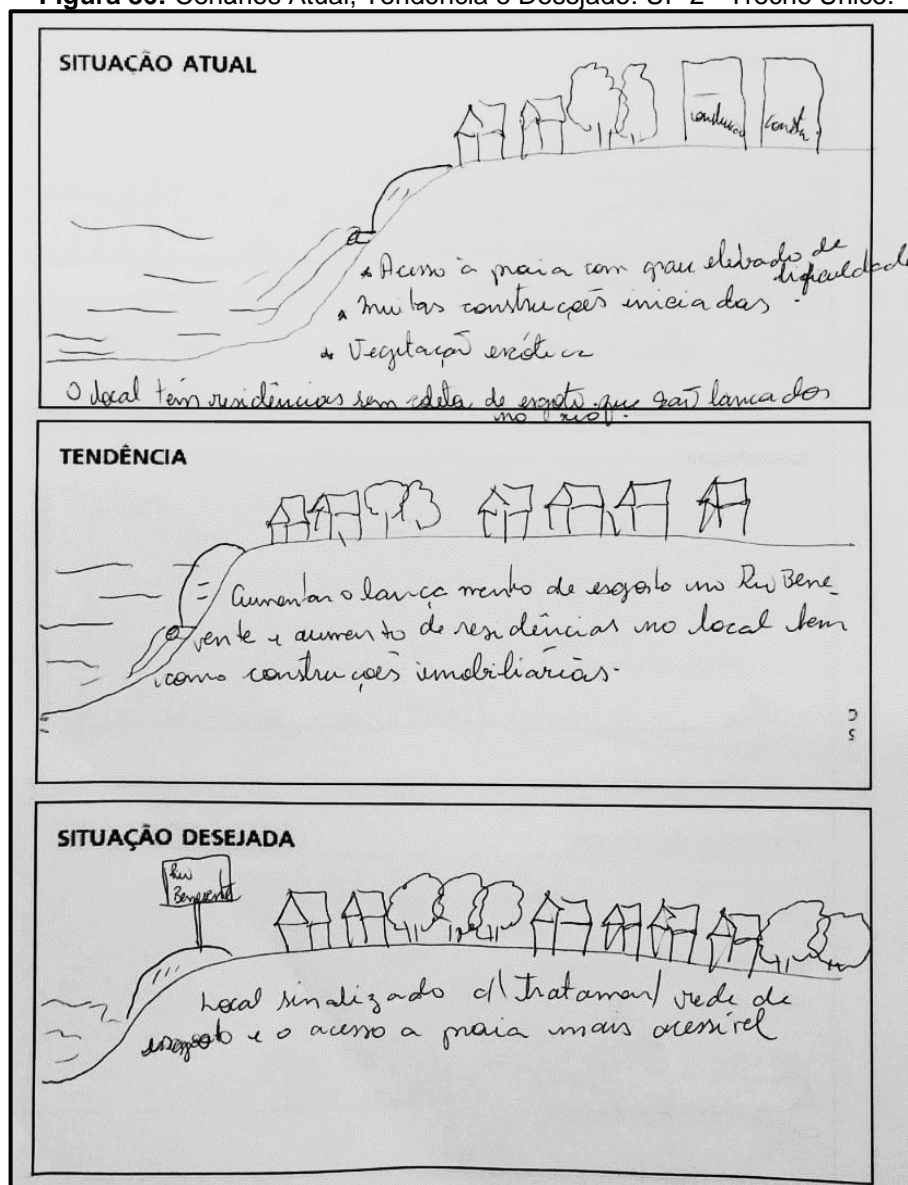 SITUAÇÃO ATUAL
Acesso à praia com grau elevado de
dificuldade
Muitas construções iniciadas
Vegetação exótica
O local tem residências sem coleta de esgoto que são lançados
no rio.
TENDÊNCIA
Aumentar o lançamento de esgoto no Rio Bene-
vente e aumento de residências no local bem
como construções imobiliárias.
SITUAÇÃO DESEJADA
Rio
Benevente
Local sinalizado c/ tratamen/ rede de
esgoto e o acesso a praia mais acessível